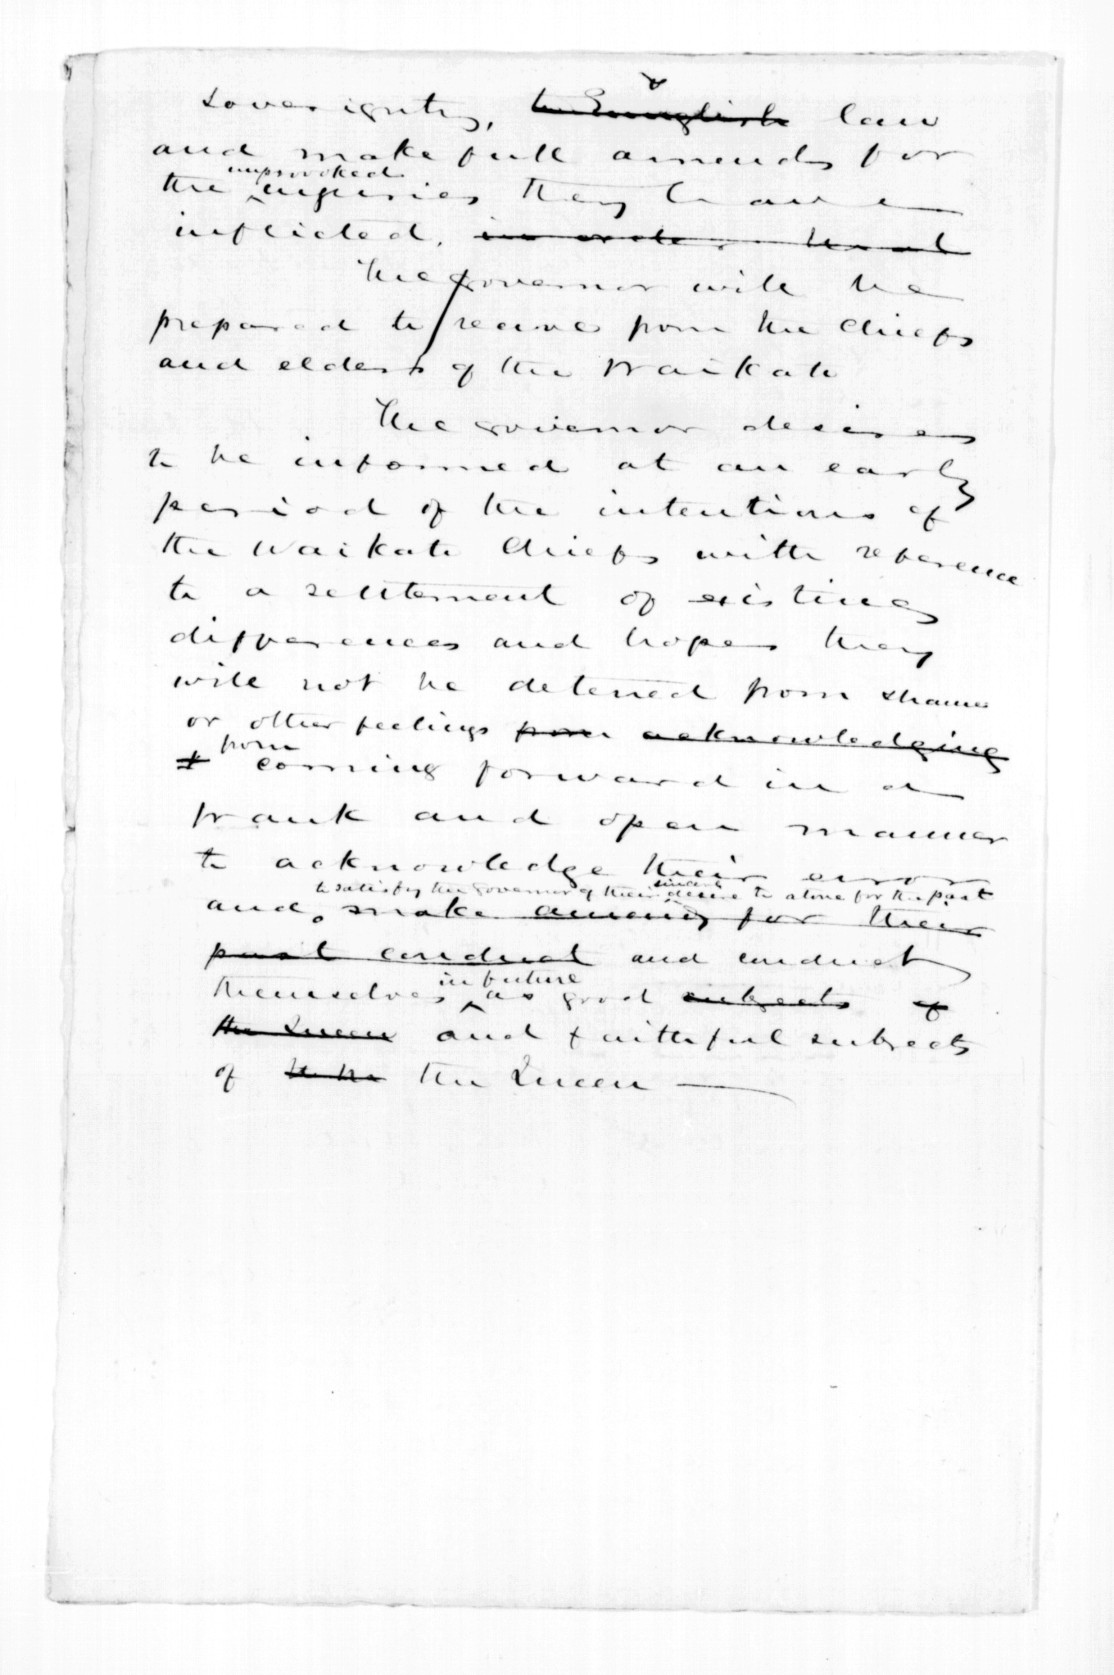 Soverignty, to English & law
and make full amends for
the unprovoked injuries they have
inflicted. in order that
The Governor will be
prepared to receive from the Chiefs
and elders of the Waikato
The Governor desires
to be informed at an early
period of the intentions of
the Waikato Chiefs with reference
to a settlement of existing
differences and hopes they
will not be deterred from shame
or other feelings from acknowledging
from
coming forward in a
frank and open manner
to acknowledge their error
to satisfy the Governor of their sincere desire to atone for the past
and make amends for their
past conduct and conduct
themselves in future as good subjects of
the Queen and faithful subjects
of the Queen